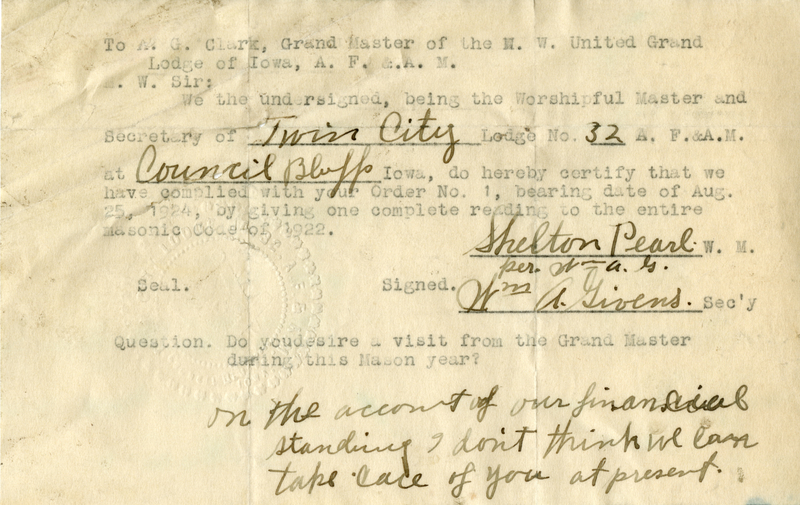 To A. G. Clark, Grand Master of the M. W. United Grand
Lodge of Iowa, A. F. &.A. M.
M. W. Sir:
We the undersigned, being the Worshipful Master and
Secretary of Twin City Lodge No. 32 A. F.&A.M.
at Council Bluffs Iowa, do hereby certify that we
have complied with your Order No. 1, bearing date of Aug.
25, 1924, by giving one complete reading to the entire
Masonic Code of 1922.
Shelton Pearl. W. M.
per. Wm A. G.
Seal. Signed. Wm A. Givens. Sec'y
Question. Do youdesire a visit from the Grand Master
during this Mason year?
on the account of our financial
standing I don't think we can
take care of you at present.